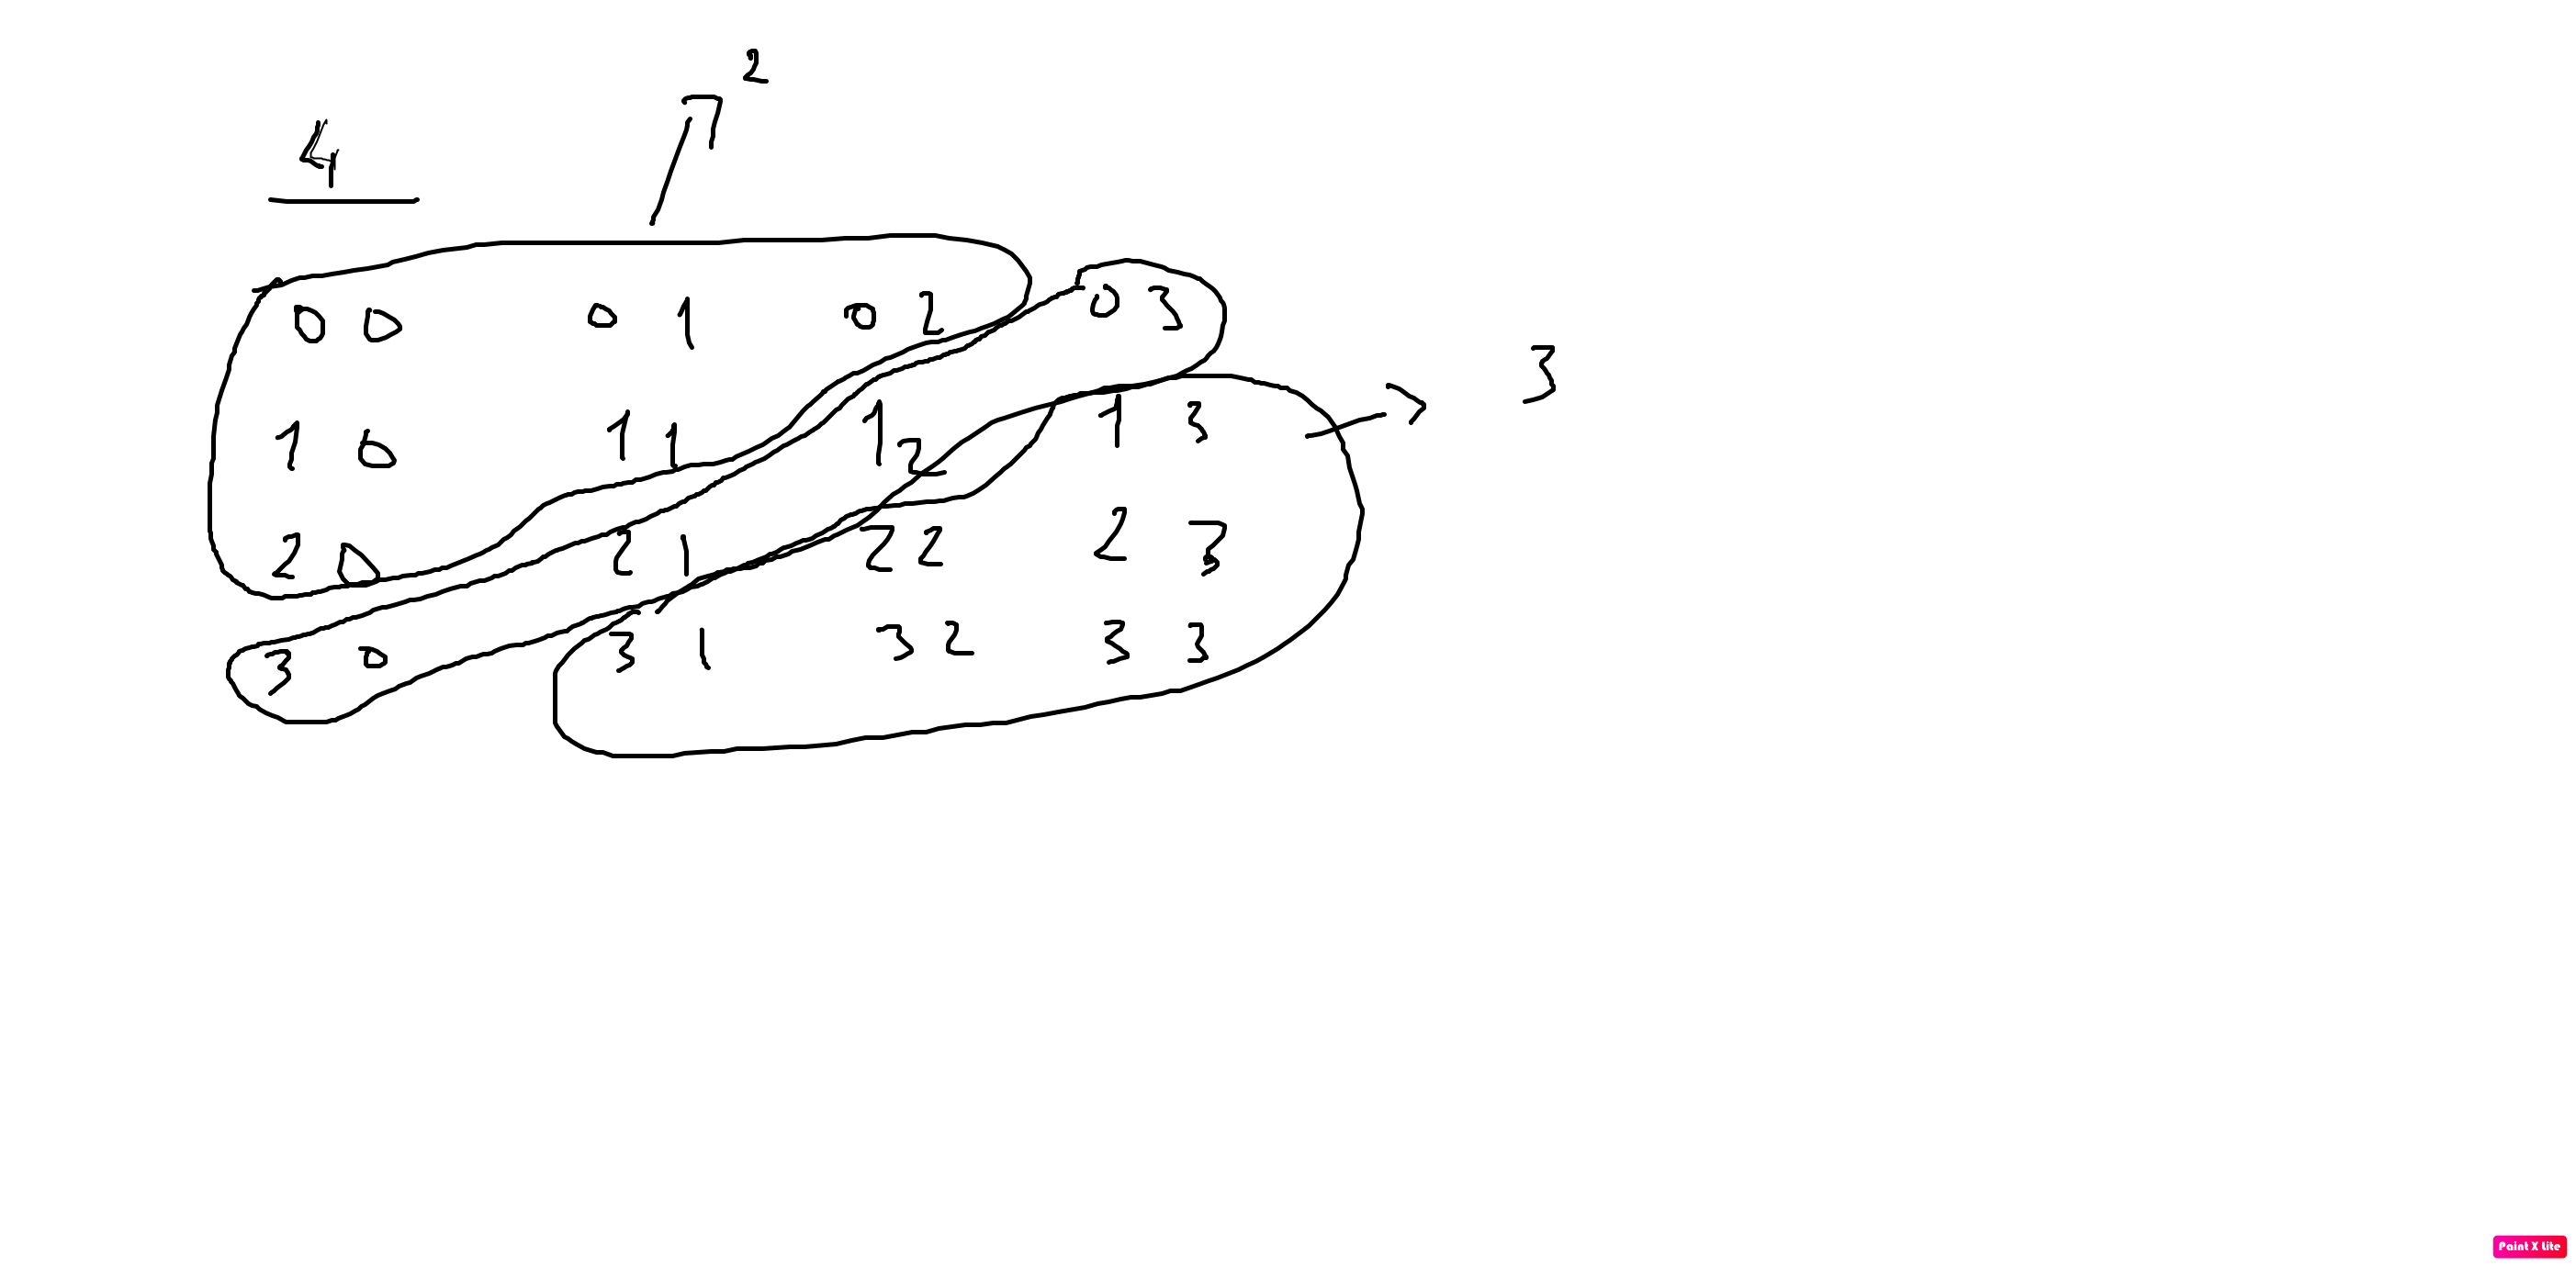 2
4
00 01 02 03
3
10 11 12 13
20 21 22 23
30 31 32 33
Paint X Lite